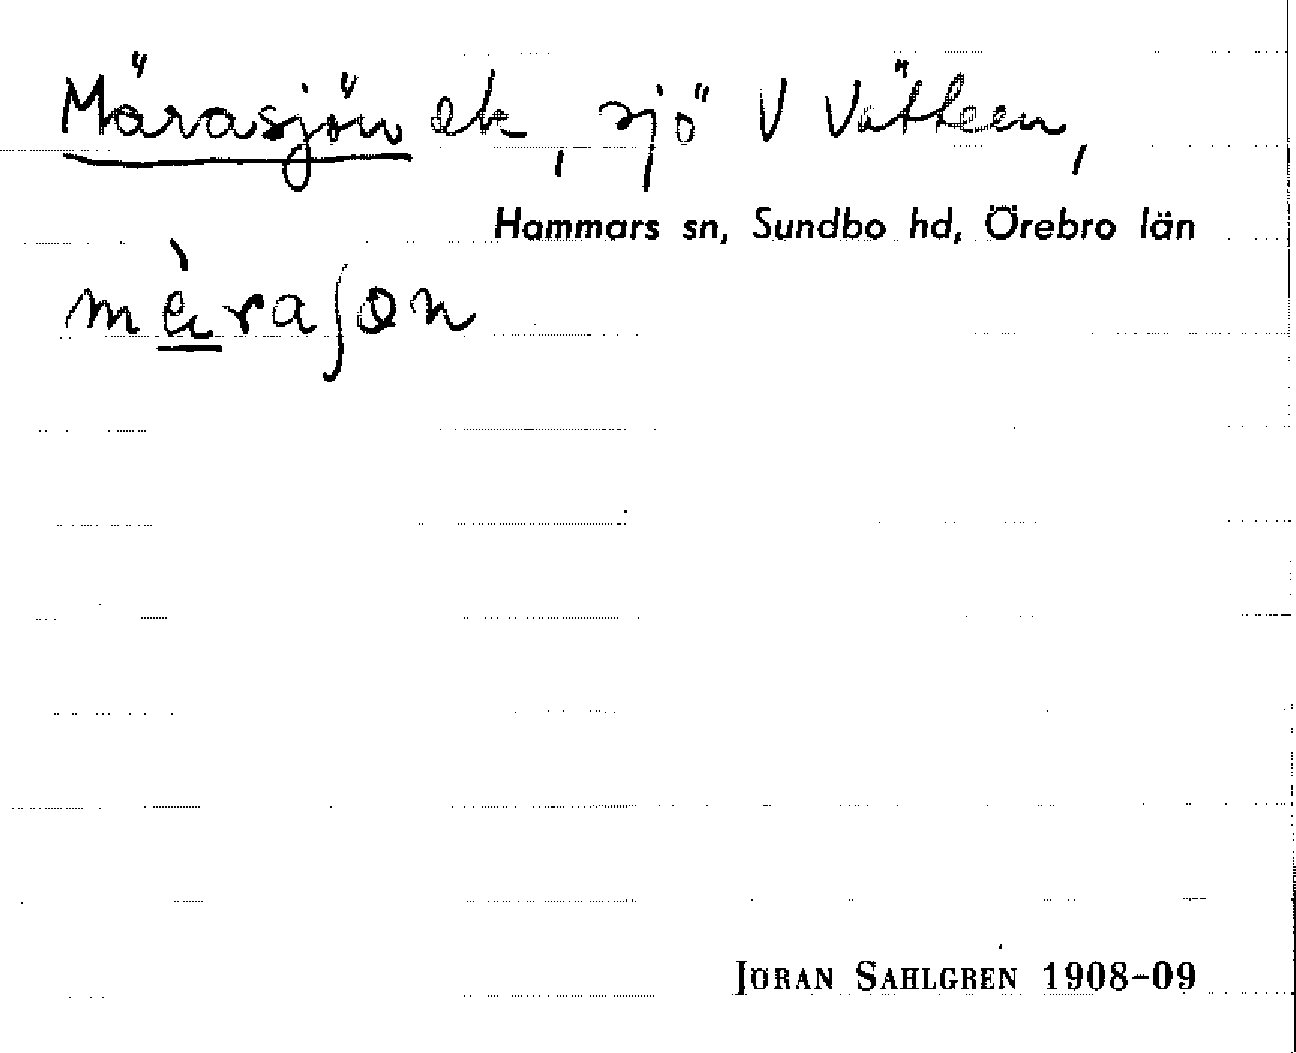 Märasjön ek, sjö V Vättern,
Hammars sn, Sundbo hd, Örebro län
JÖRAN SAHLGREN 1908–09